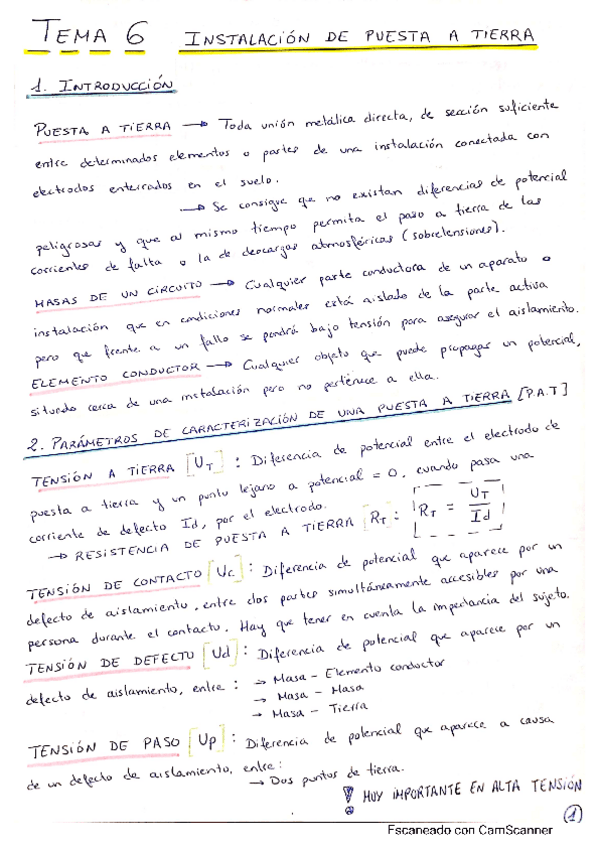 TEMA 6 INSTALACIÓN DE PUESTA A TIERRA
1. INTRODUCCIÓN
PUESTA A TIERRA → Toda unión metálica directa, de sección suficiente
entre determinados elementos o partes de una instalación conectada con
electrodos enterrados en el suelo.
→ Se consigue que no existan diferencias de potencial
peligrosas y que al mismo tiempo permita el paso a tierra de las
corrientes de falta o la de descargas atmosféricas (sobretensiones).
MASAS DE UN CIRCUITO → Cualquier parte conductora de un aparato o
instalación que en condiciones normales está aislado de la parte activa
pero que frente a un fallo se pondrá bajo tensión para asegurar el aislamiento.
ELEMENTO CONDUCTOR → Cualquier objeto que puede propagar un potencial,
situado cerca de una instalación pero no pertenece a ella.
2. PARÁMETROS DE CARACTERIZACIÓN DE UNA PUESTA A TIERRA [P.A.T]
TENSIÓN A TIERRA [U_T] : Diferencia de potencial entre el electrodo de
puesta a tierra y un punto lejano a potencial = 0, cuando pasa una
corriente de defecto Id, por el electrodo.
→ RESISTENCIA DE PUESTA A TIERRA [R_T] : R_T = U_T / Id
TENSIÓN DE CONTACTO [Uc] : Diferencia de potencial que aparece por un
defecto de aislamiento, entre dos partes simultáneamente accesibles por una
persona durante el contacto. Hay que tener en cuenta la impedancia del sujeto.
TENSIÓN DE DEFECTO [Ud] : Diferencia de potencial que aparece por un
defecto de aislamiento, entre : → Masa - Elemento conductor
→ Masa - Masa
→ Masa - Tierra
TENSIÓN DE PASO [Up] : Diferencia de potencial que aparece a causa
de un defecto de aislamiento, entre:
→ Dos puntos de tierra.
! MUY IMPORTANTE EN ALTA TENSIÓN
1
Escaneado con CamScanner